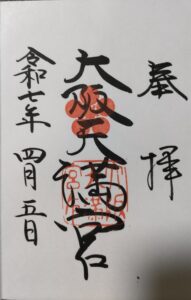 奉拝
大阪天満宮
令和七年 四月 五日